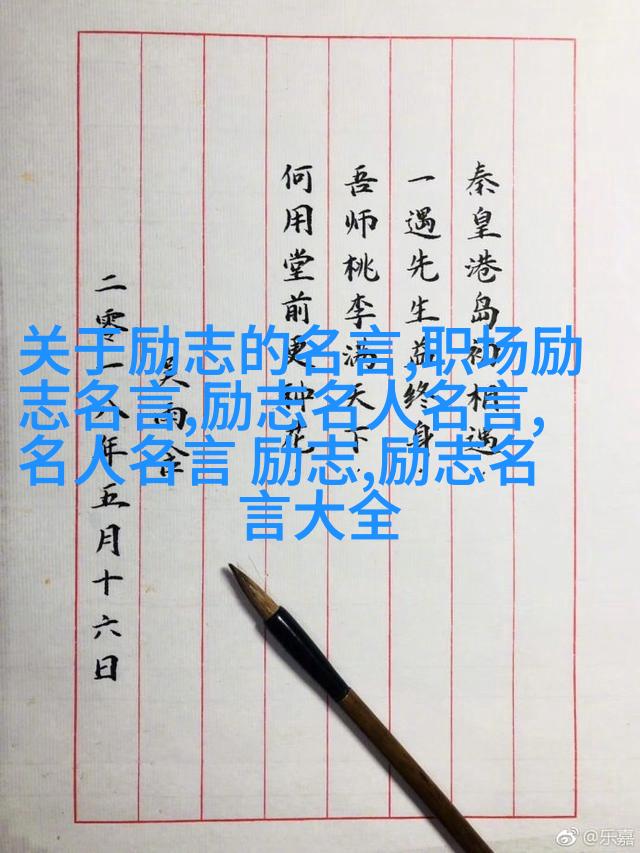 秦皇港岛初相遇
一遇先生益终身
吾师桃李满天下
何用堂前更种花
吴雨
二零一八年五月十六日
关于励志的名言,职场励
志名言,励志名人名言,
名人名言 励志,励志名
言大全
@乐嘉